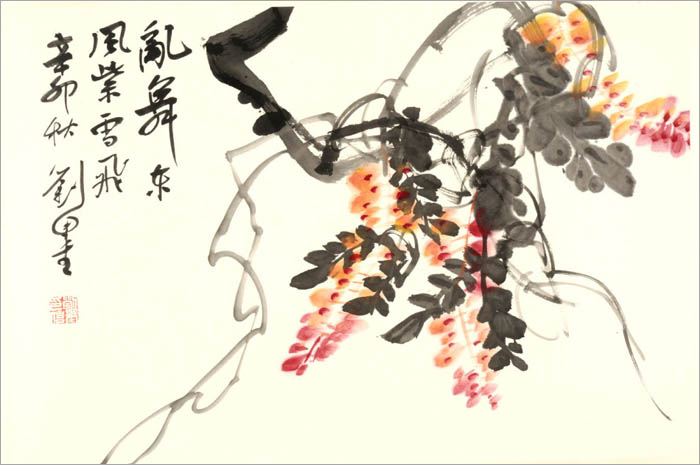 亂舞东
風紫雪飛
辛卯秋 劉墨